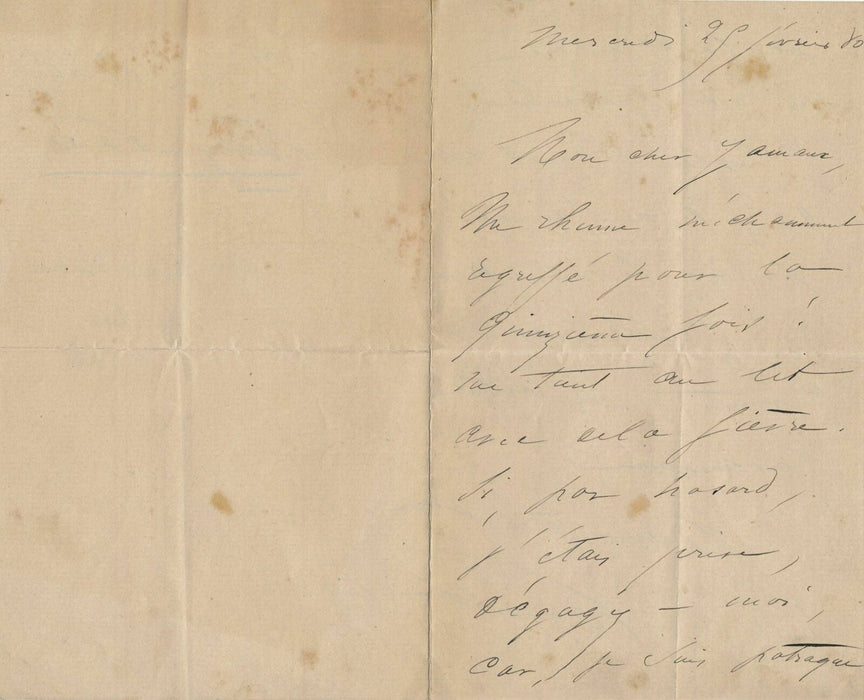 Mercredi 25 février 80
Mon cher Jamaux,
Un rhume méchamment
regreffé pour la
quinzième fois !
me tient au lit
avec de la fièvre.
Si, par hasard,
j'étais prise,
dégagez-moi,
car, je suis patraque